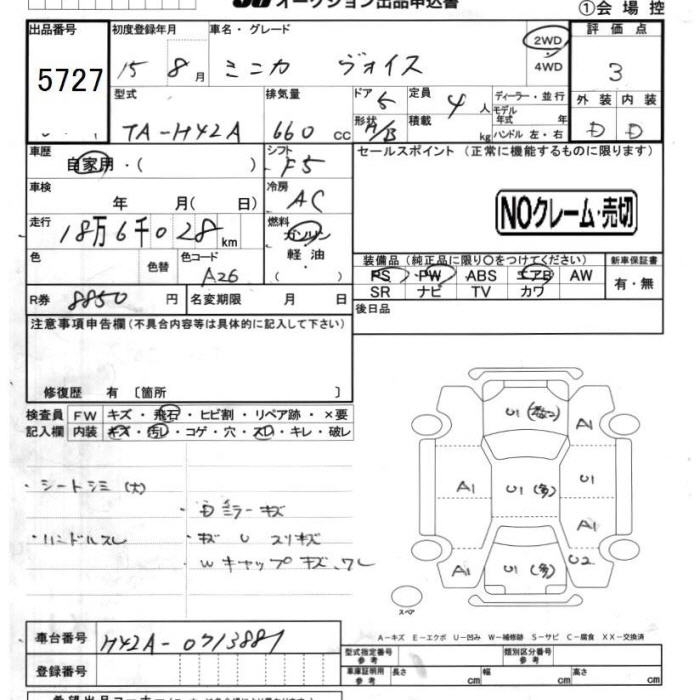 オークション出品申込書
①会場控
出品番号 5727
初度登録年月 15 8月
車名・グレード ミニカ ヴォイス
2WD
4WD
評価点 3
型式 TA-H42A
排気量 660 cc
ドア 5
形状 H/B
定員 4人
積載 kg
ディーラー・並行
モデル年式 年
ハンドル 左・右
外装 内装
D D
車歴 自家用・( )
シフト F5
セールスポイント (正常に機能するものに限ります)
車検 年 月( 日)
冷房 AC
NOクレーム・売切
走行 18万6千028km
燃料 ガソリン・軽油 ( )
色 色替 色コード A26
装備品 (純正品に限り〇をつけてください)
新車保証書
PS PW ABS エアB AW
SR ナビ TV カワ
有・無
R券 8850円
名変期限 月 日
後日品
注意事項申告欄(不具合内容等は具体的に記入して下さい)
修復歴 有〔箇所 〕
検査員記入欄
FW キズ・飛石・ヒビ割・リペア跡・×要
内装 キズ・汚レ・コゲ・穴・スレ・キレ・破レ
・シートシミ(大)
・ハンドルスレ
・ミラーキズ
・キズ U スリキズ
Wキャップキズ、ワレ
U1
A1
A1
U1(多)
U1
A1
A1
U1(多)
U2
スペア
A-キズ E-エクボ U-凹み W-補修跡 S-サビ C-腐食 XX-交換済
車台番号 H42A-0713881
登録番号
型式指定番号 参考
類別区分番号 参考
車庫証明用 参考 長さ cm 幅 cm 高さ cm